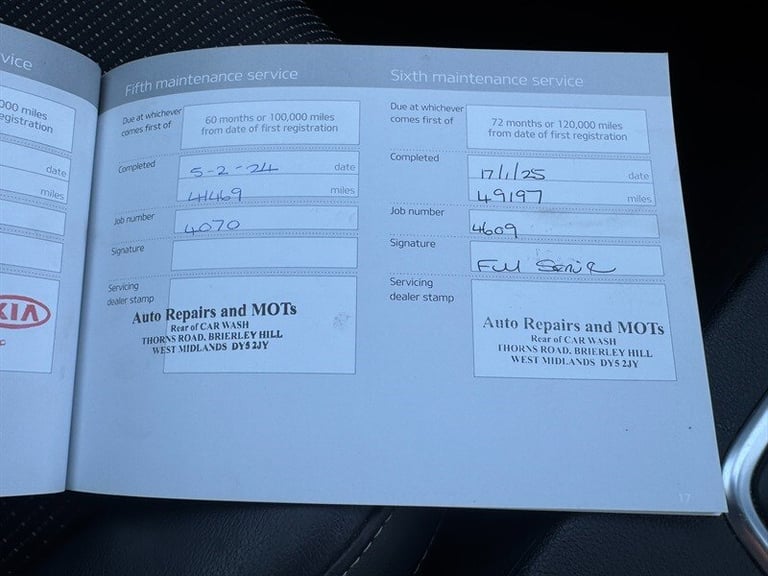 vice
000 miles
egistration
date
miles
KIA
Fifth maintenance service
Due at whichever
comes first of
60 months or 100,000 miles
from date of first registration
Completed
5-2-24 date
41469 miles
Job number
4070
Signature
Servicing
dealer stamp
Auto Repairs and MOTs
Rear of CAR WASH
THORNS ROAD, BRIERLEY HILL
WEST MIDLANDS DY5 2JY
Sixth maintenance service
Due at whichever
comes first of
72 months or 120,000 miles
from date of first registration
Completed
17/1/25 date
49197 miles
Job number
4609
Signature
Full Service
Servicing
dealer stamp
Auto Repairs and MOTs
Rear of CAR WASH
THORNS ROAD, BRIERLEY HILL
WEST MIDLANDS DY5 2JY
17